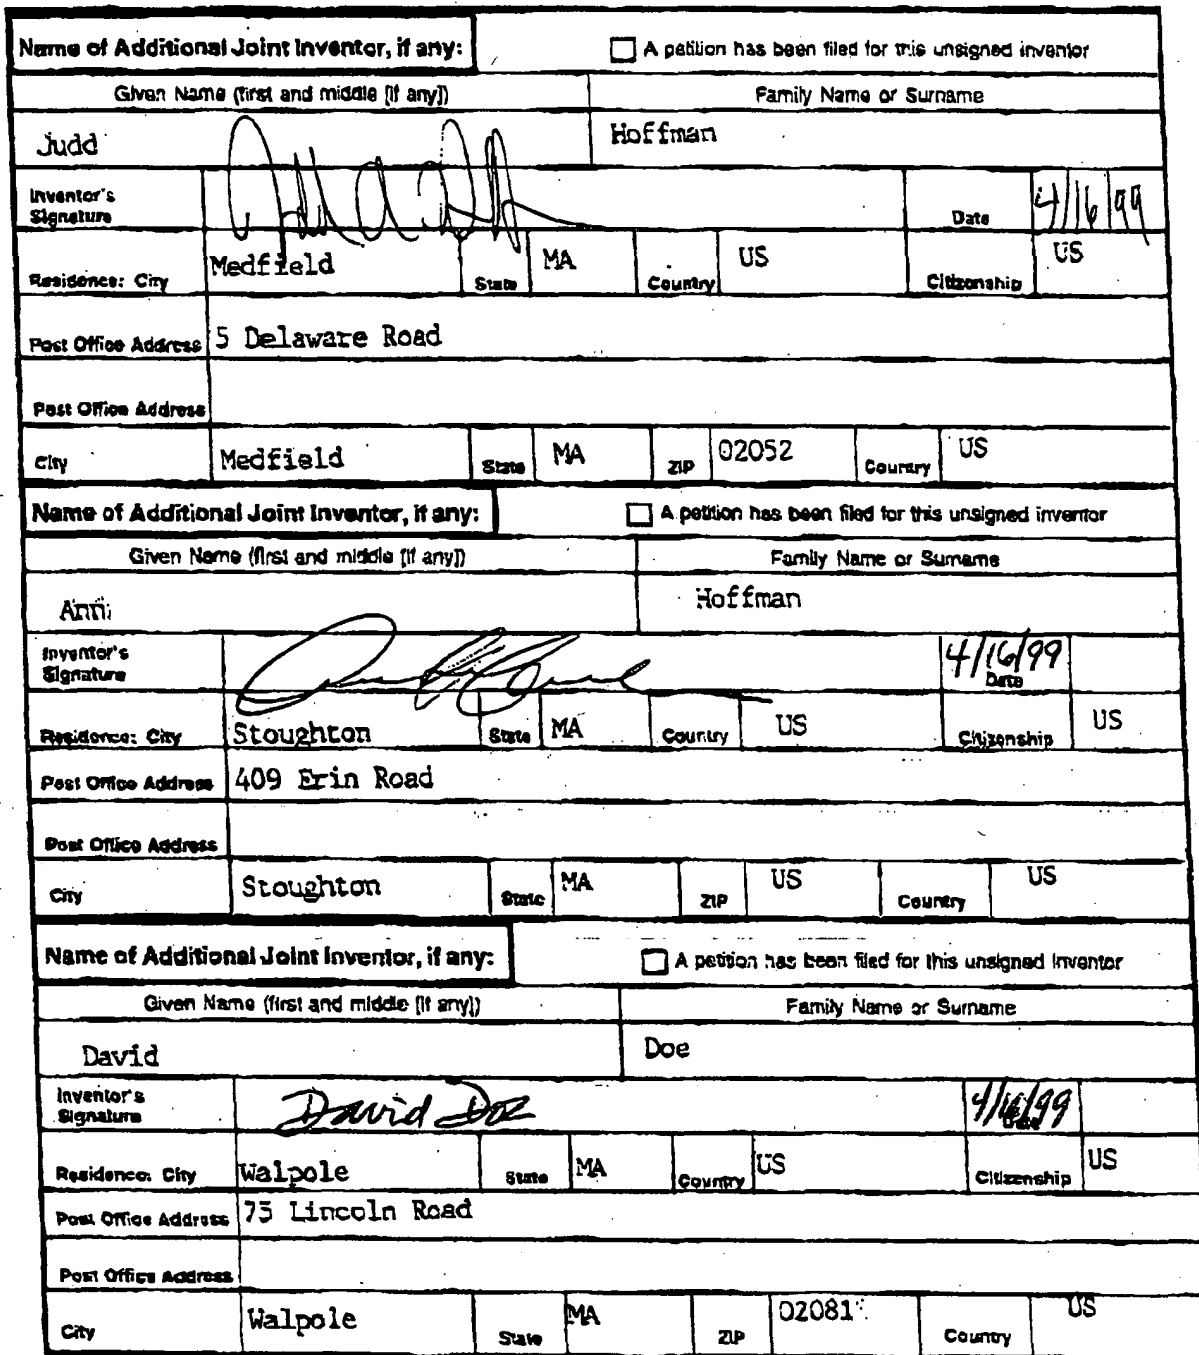 Name of Additional Joint Inventor, if any: A petition has been filed for this unsigned inventor
Given Name (first and middle [if any]) Family Name or Surname
Judd Hoffman
Inventor's Signature Date 4/16/99
Residence: City Medfield State MA Country US Citizenship US
Post Office Address 5 Delaware Road
Post Office Address
City Medfield State MA ZIP 02052 Country US
Name of Additional Joint Inventor, if any: A petition has been filed for this unsigned inventor
Given Name (first and middle [if any]) Family Name or Surname
Ann Hoffman
Inventor's Signature 4/16/99 Date
Residence: City Stoughton State MA Country US Citizenship US
Post Office Address 409 Erin Road
Post Office Address
City Stoughton State MA ZIP US Country US
Name of Additional Joint Inventor, if any: A petition has been filed for this unsigned inventor
Given Name (first and middle [if any]) Family Name or Surname
David Doe
Inventor's Signature David Doe 4/16/99 Date
Residence: City Walpole State MA Country US Citizenship US
Post Office Address 75 Lincoln Road
Post Office Address
City Walpole State MA ZIP 02081 Country US